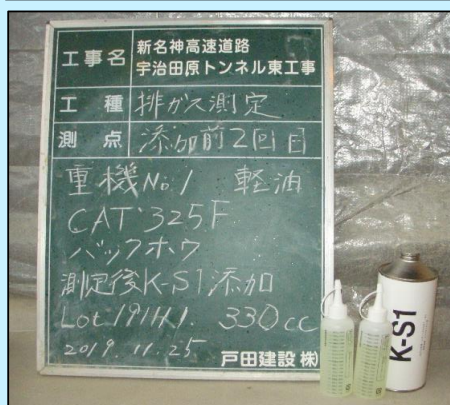 工事名 新名神高速道路
宇治田原トンネル東工事
工種 排ガス測定
測点 添加前2回目
重機No.1 軽油
CAT 325F
バックホウ
測定後K-S1添加
330cc
2019.11.25
戸田建設㈱
K-S1